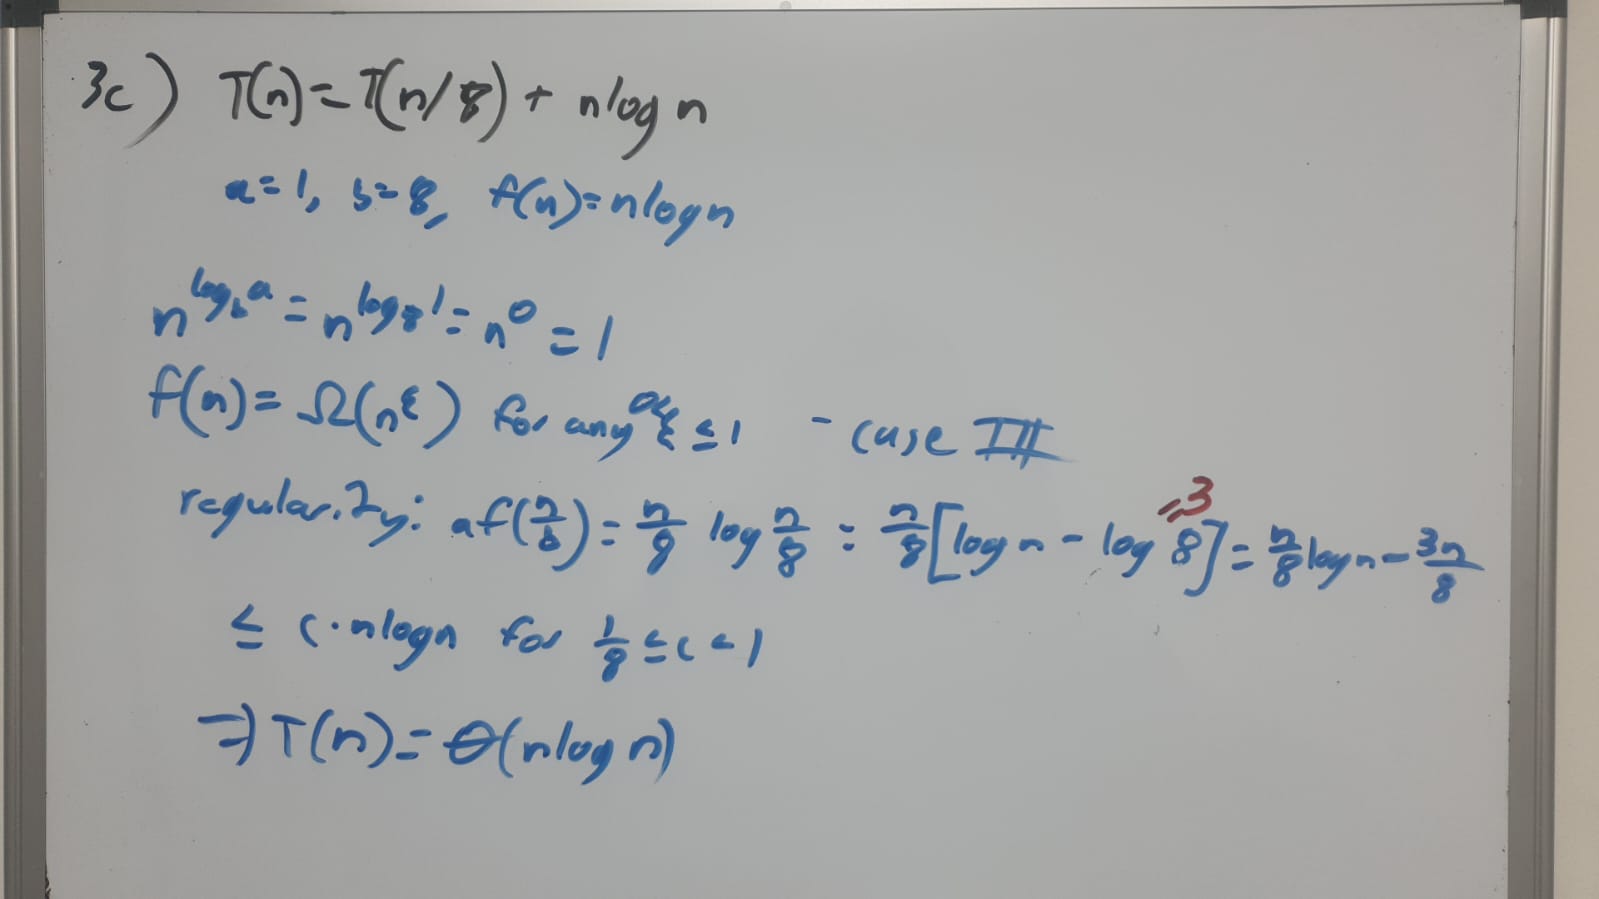 3c) T(n)=T(n/8)+ nlog n
a=1, b=8, f(n)=nlogn
n^{log_b a} = n^{log_8 1} = n^0 = 1
f(n)= Ω(n^ε) for any 0<ε≤1 - case III
regularity: af(n/b)= n/8 log n/8 = n/8[logn - log 8]= n/8 logn - 3n/8
=3
≤ c·nlogn for 1/8 ≤c<1
⇒T(n)=Θ(nlog n)